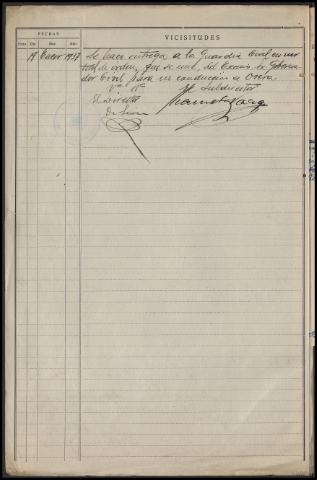 FECHAS
VICISITUDES
Hora Día Mes Año
18 Enero 1937 Se hace entrega a la Guardia Civil en vir
tud de orden, que se une, del Excmo. Sr. Goberna
dor Civil para su conducción a Osera.
Vº Bº
El Subdirector
El Director